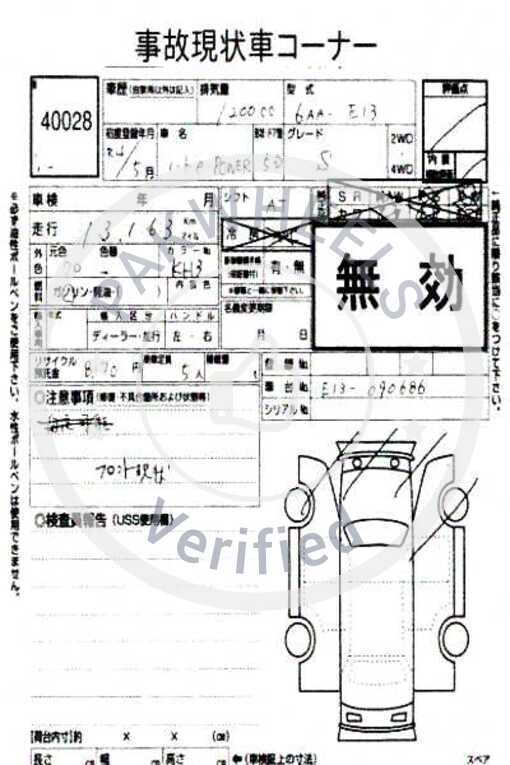 事故現状車コーナー
40028
車歴(自家用以外は記入) 排気量 型式
1200 cc 6AA-E13
評価点
初度登録年月 車名 ドア数 グレード
R4/5月 ノート e POWER 5D S
2WD
4WD
内装
車検 年 月 シフト AT
走行 13,163 Km マイル
外色 元色 色替 カラー№
KH3
冷房
有・無
無効
燃料 ガソリン・軽油・( ) 内装色
名義変更期限
月 日
年式 輸入区分 ハンドル
ディーラー・並行 左・右
リサイクル預託金 円 乗車定員 5人 積載量 t
車台№ E13-090686
シリアル№
◎注意事項(修復・不具合箇所および状態等)
フロント現状
◎検査員報告(USS使用欄)
PAKWHEELS
Verified
【荷台内寸】約 × × (㎝)
長さ ㎝ 幅 ㎝ 高さ ㎝ ←(車検証上の寸法)
スペア
※必ず油性ボールペンをご使用下さい。水性ボールペンは使用できません。